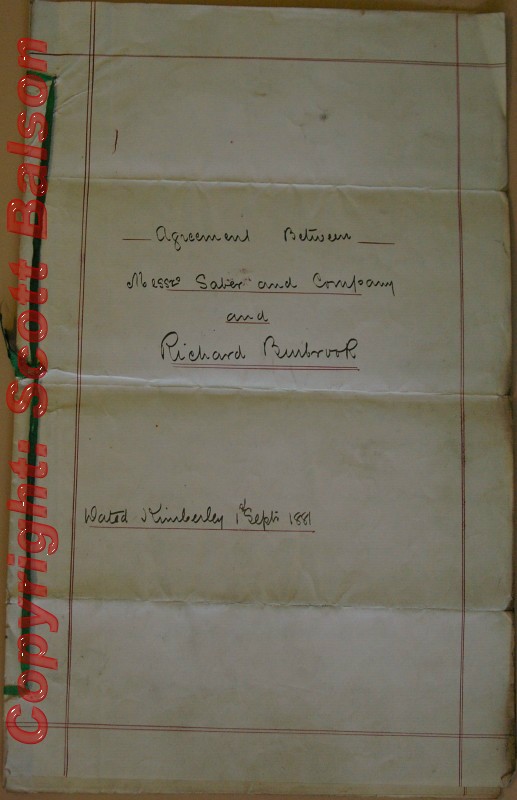 Agreement Between
Messrs Saber and Company
and
Richard Binbrook
Dated Kimberley 1st Septr 1881
Copyright: Scott Balson